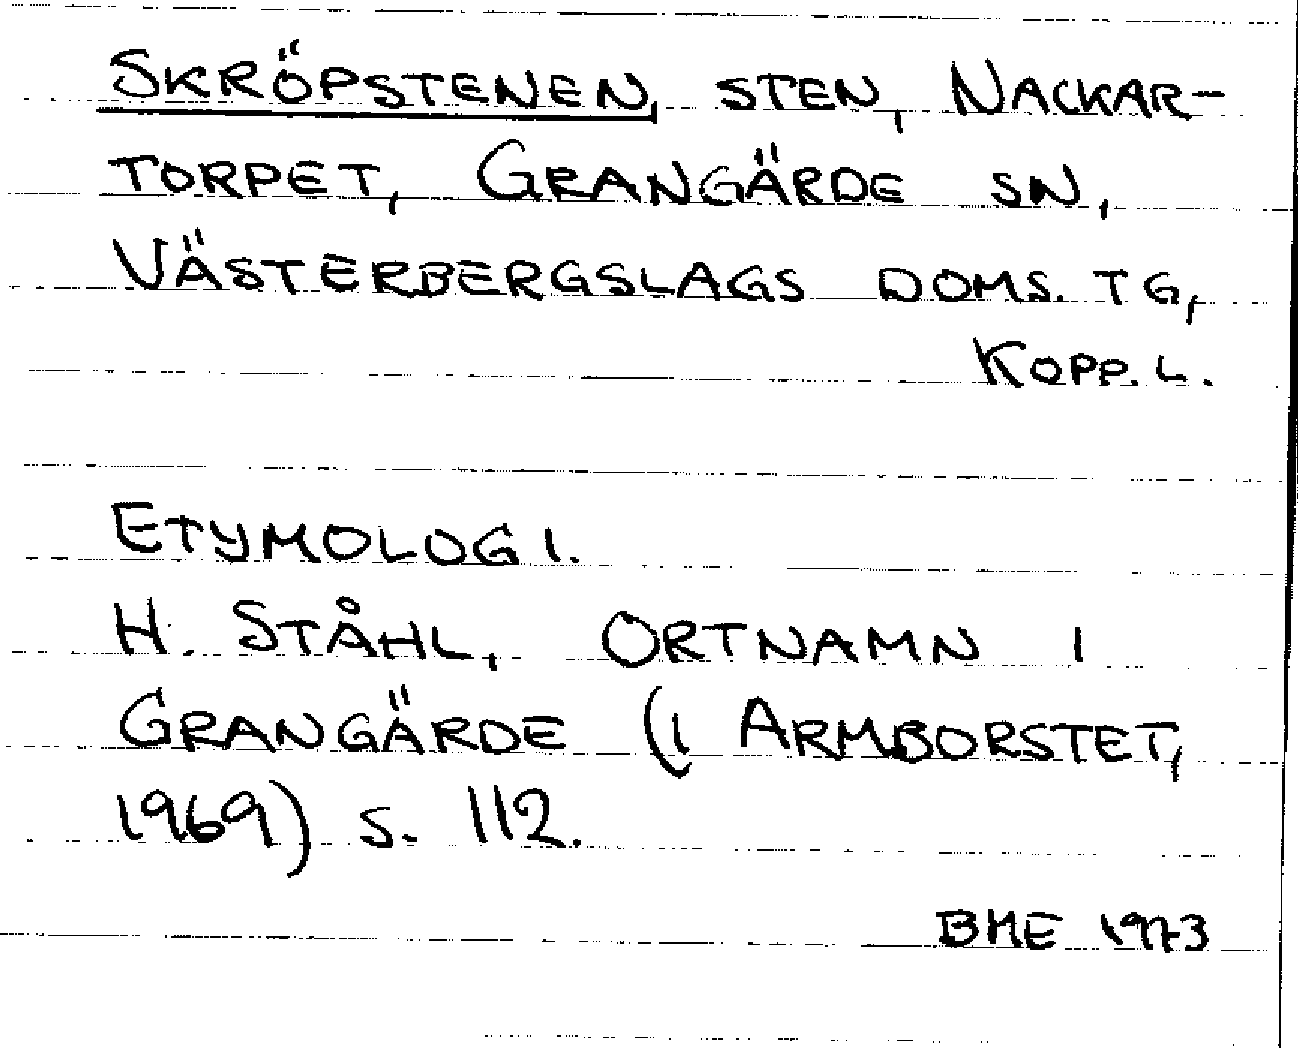 SKRÖPSTENEN, STEN, NACKAR-
TORPET, GRANGÄRDE SN,
VÄSTERBERGSLAGS DOMS. TG,
KOPP. L.
ETYMOLOGI.
H. STÅHL, ORTNAMN I
GRANGÄRDE (I ARMBORSTET,
1969) S. 112.
BME 1973